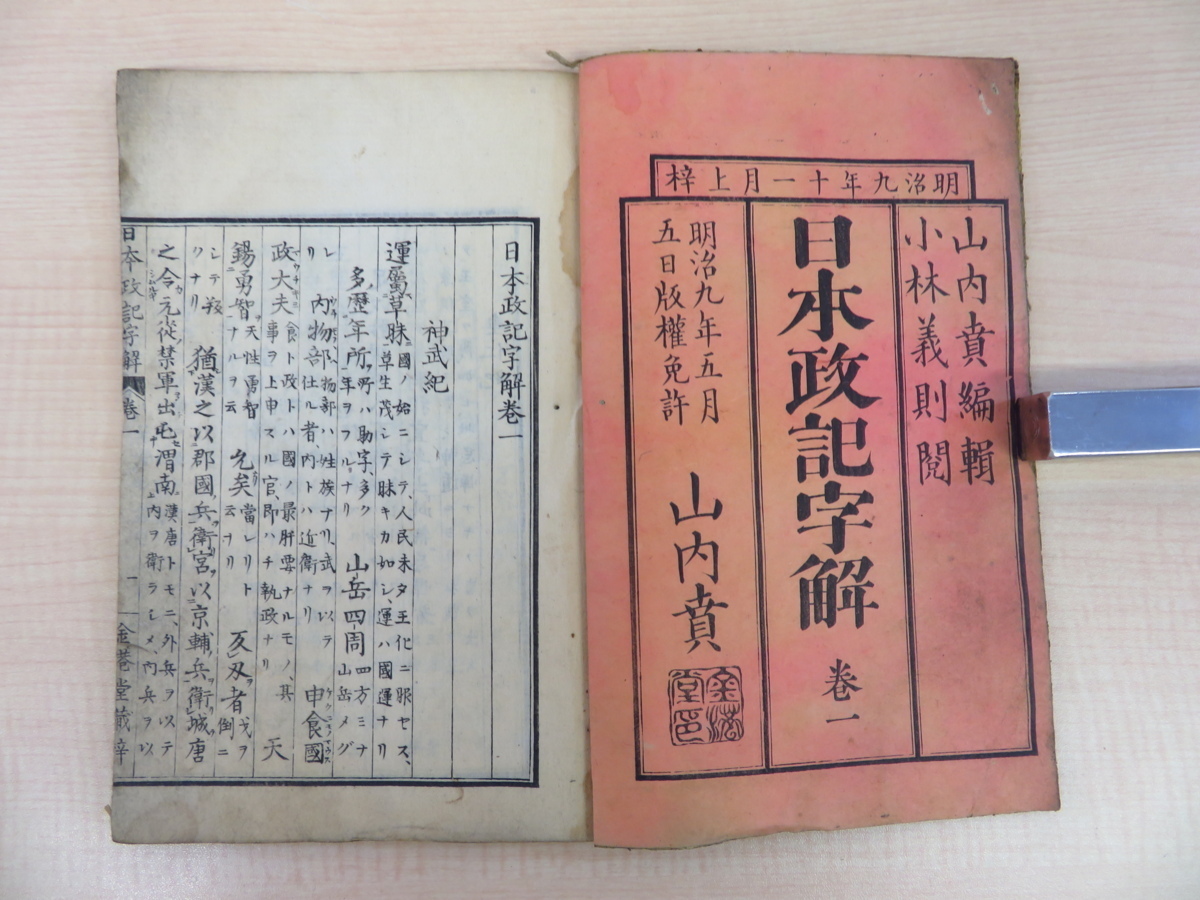 明治九年十一月上梓
山内賁編輯
小林義則閲
日本政記字解 卷一
明治九年五月
五日版權免許
山内賁
日本政記字解卷一
神武紀
運屬草昧 國ノ始ニシテ、人民未タ王化ニ服セス、
草生茂シテ昧キカ如シ、運ハ國運ナリ
多歷年所 所ハ助字、多ク
年ヲフルナリ
山岳四周 四方ミナ
山岳メグ
レ
リ
内物部 物部ハ姓族ナリ、武ヲ以テ
仕ル者内トハ近衛ナリ
申食國
政大夫 食ト政トハ國ノ最肝要ナルモノ、其
事ヲ上申スル官、即ハチ執政ナリ
天
錫勇智 天性勇智
ナルヲ云
允矣 當レリト
云ナリ
反刄者 戈ヲ
倒ニ
シテ
クナリ
猶漢之以郡國兵衛宮、以京輔兵衛城、唐
之令元從禁軍出屯渭南 漢唐トモニ、外兵ヲ以テ
内ヲ衛ラシメ、内兵ヲ以
日本政記字解 卷一 一 金港堂藏梓